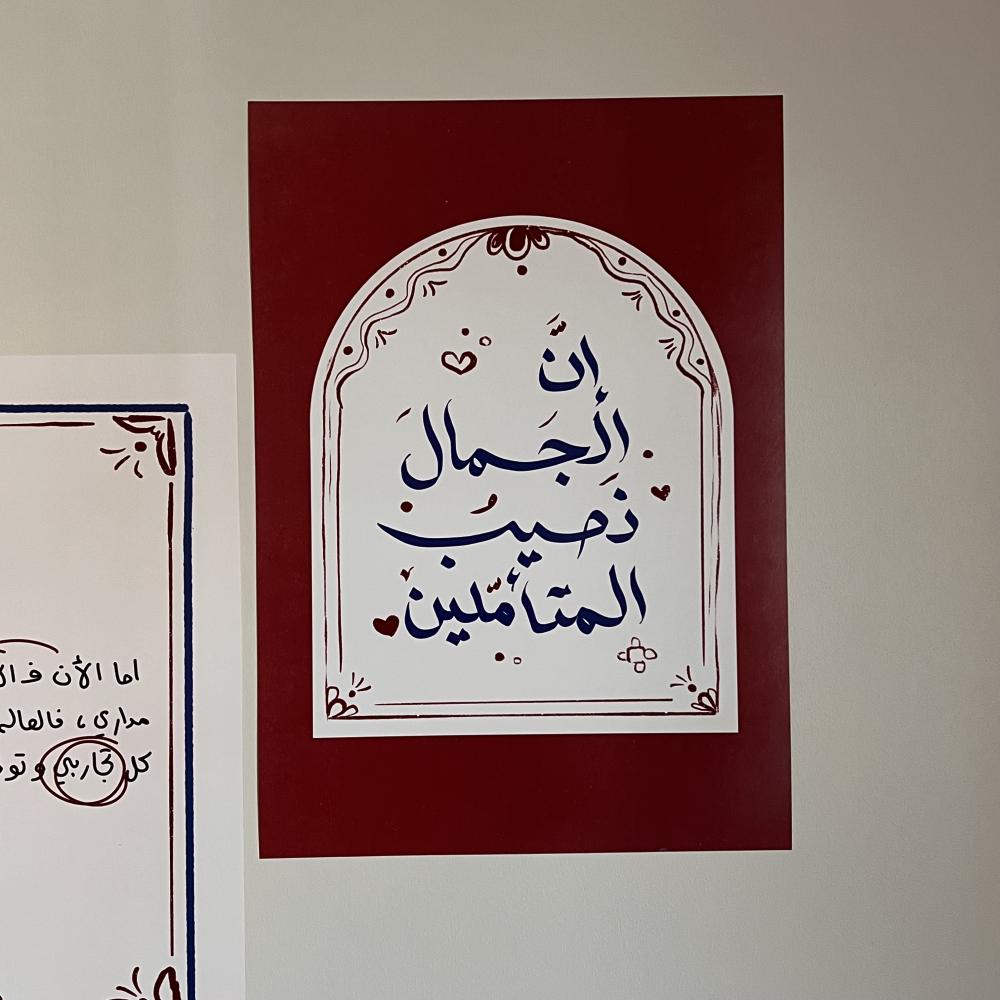 انَّ
الجَمالَ
نَصيبُ
المتأمّلينَ
اما الأن ف
مداري ، فالعالم
كل تجاربي